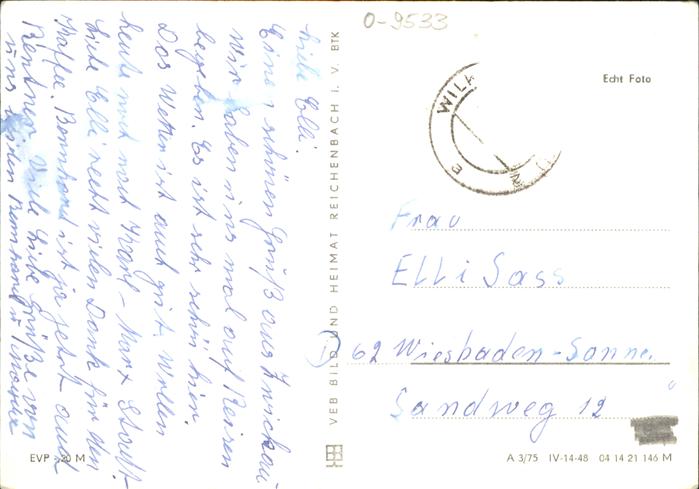 O-9533
Liebe Elli.
Einen schönen Gruß aus Zwickau
Wir haben uns mal auf Reisen
begeben. Es ist sehr schön hier.
Das Wetter ist auch gut. Wollen
heute noch nach Karl-Marx Stadt.
Liebe Elli recht vielen Dank für den
Kaffee. Bernhard ist ja jetzt auch
Rentner. Viele liebe Grüße von
uns Bernhard u
VEB BILD UND HEIMAT REICHENBACH I. V. BTK
Echt Foto
WILK
Frau
Elli Sass
62 Wiesbaden-Sonne.
Sandweg 12
EVP -20 M
A 3/75 IV-14-48 04 14 21 146 M